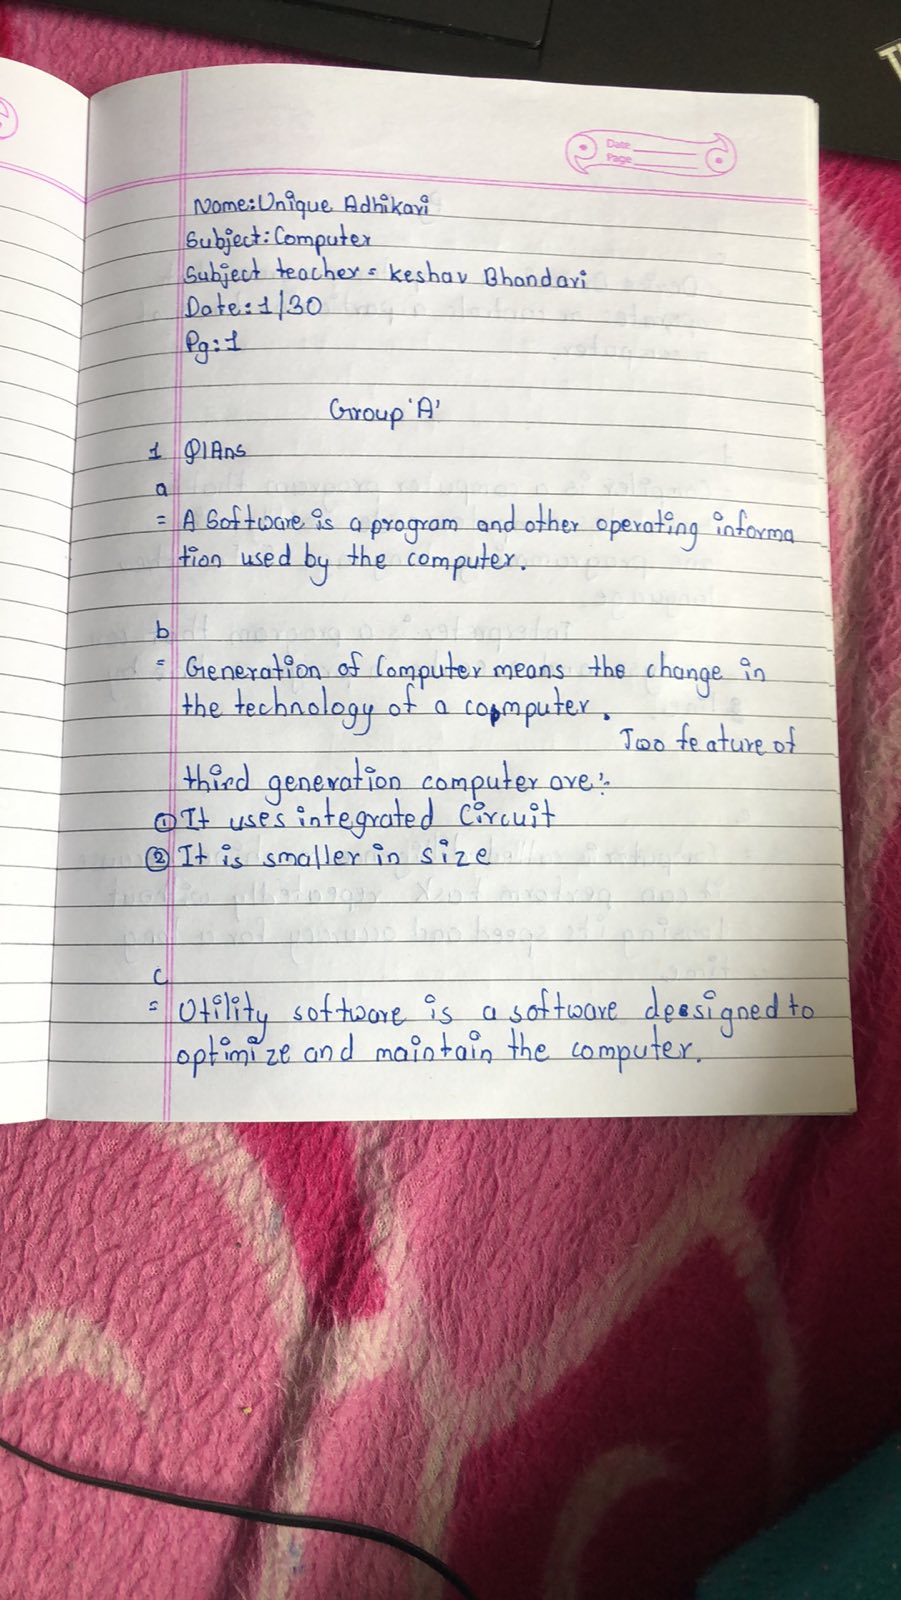 Date
Page
Name: Unique Adhikari
Subject: Computer
Subject teacher = Keshav Bhandari
Date: 1/30
Pg: 1
Group 'A'
1 Q1Ans
a
= A Software is a program and other operating informa
tion used by the computer.
b
= Generation of Computer means the change in
the technology of a computer.
Two feature of
third generation computer are:-
① It uses integrated Circuit
② It is smaller in size
c
= Utility software is a software designed to
optimize and maintain the computer.